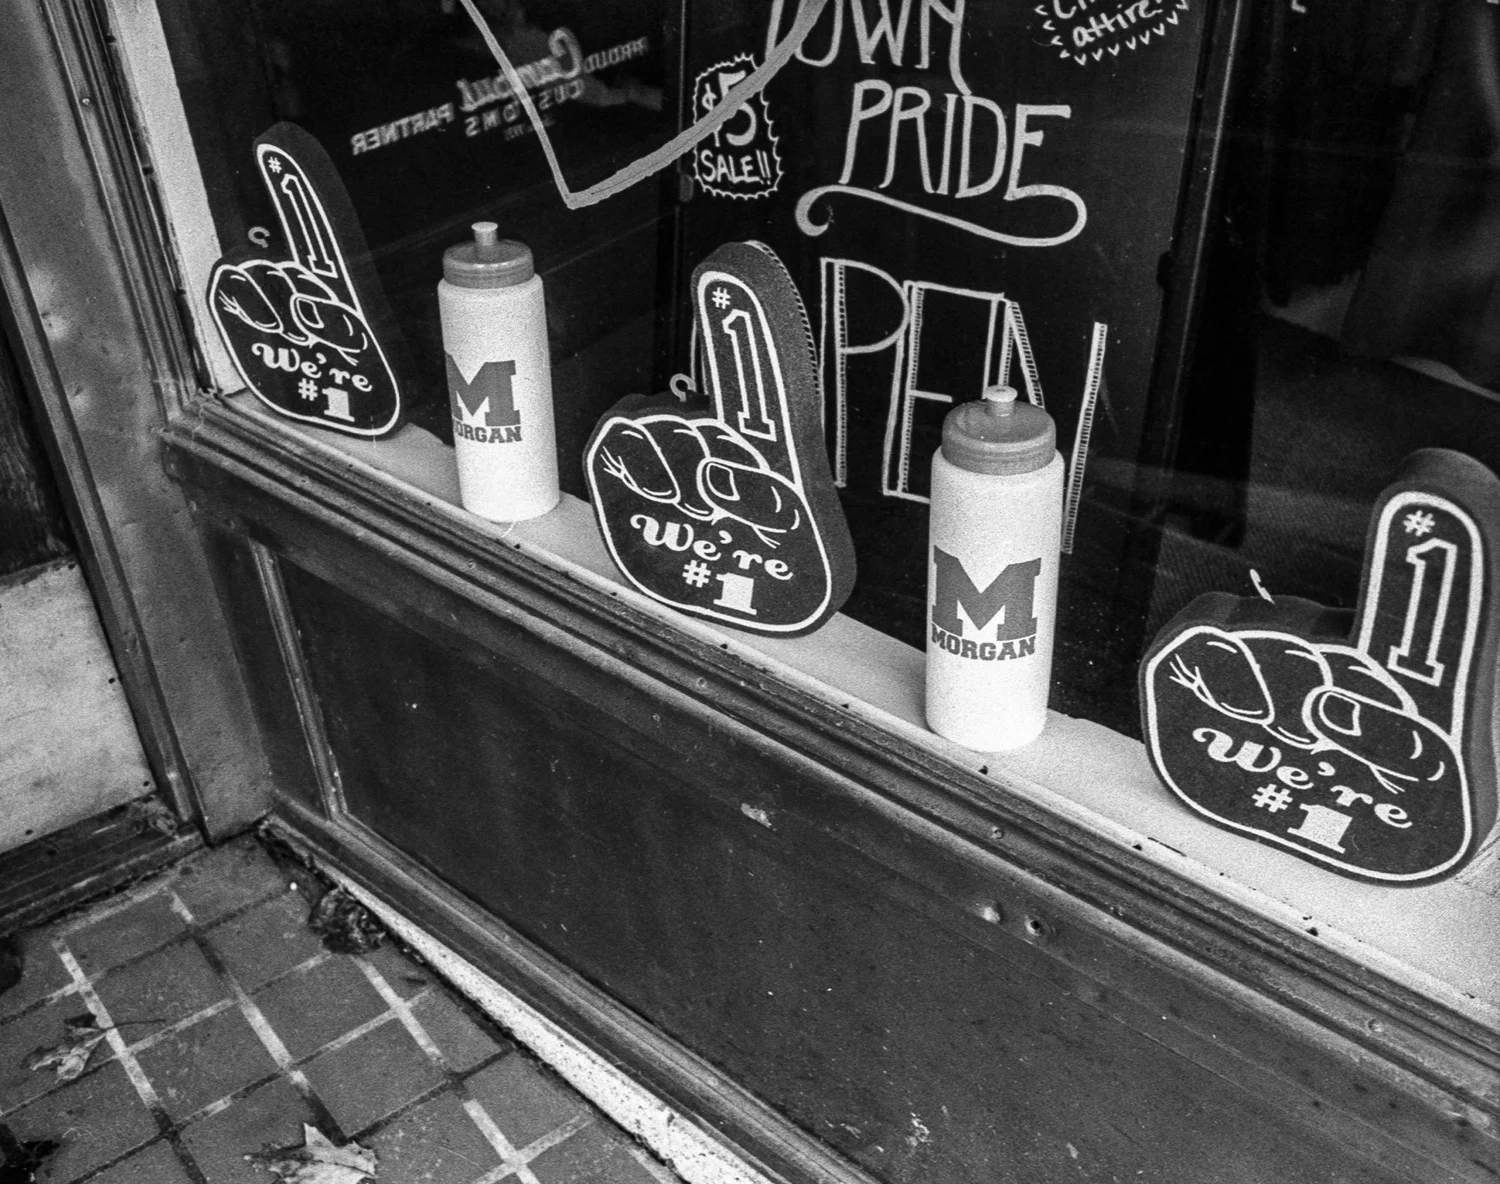 PROUD
Campus
CUSTOMS
PARTNER
$5
SALE!!
attire!
TOWN
PRIDE
OPEN
#1
We're
#1
M
MORGAN
#1
We're
#1
M
MORGAN
#1
We're
#1